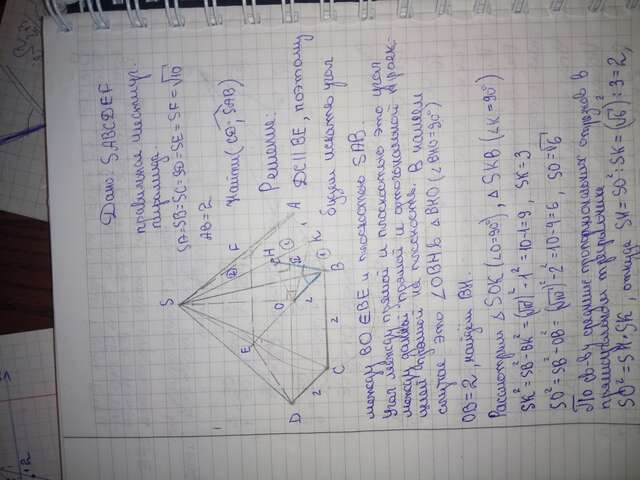 Дано: SABCDEF
правильная шестиуг.
пирамида
SA=SB=SC=SD=SE=SF=√10
AB=2
Найти (CD; SAB)
Решение:
DC || BE, поэтому
будем искать угол
между BO ∈ BE и плоскостью SAB.
Угол между прямой и плоскостью это угол
между данной прямой и ортогональной проек-
цией прямой на плоскость. В нашем
случае это ∠OBH в △BHO (∠BHO=90°)
OB=2, найдём BH.
Рассмотрим △SOK (∠O=90°), △SKB (∠K=90°)
SK²=SB²-BK²=(√10)²-1²=10-1=9, SK=3
SO²=SB²-OB²=(√10)²-2²=10-4=6, SO=√6
По св-ву средние пропорциональных отрезков в
прямоугольном треугольнике
SO²=SH·SK, откуда SH=SO²:SK=(√6)²:3=2,
S
F
E
D
C
B
A
K
H
O
2
2
2
1
1